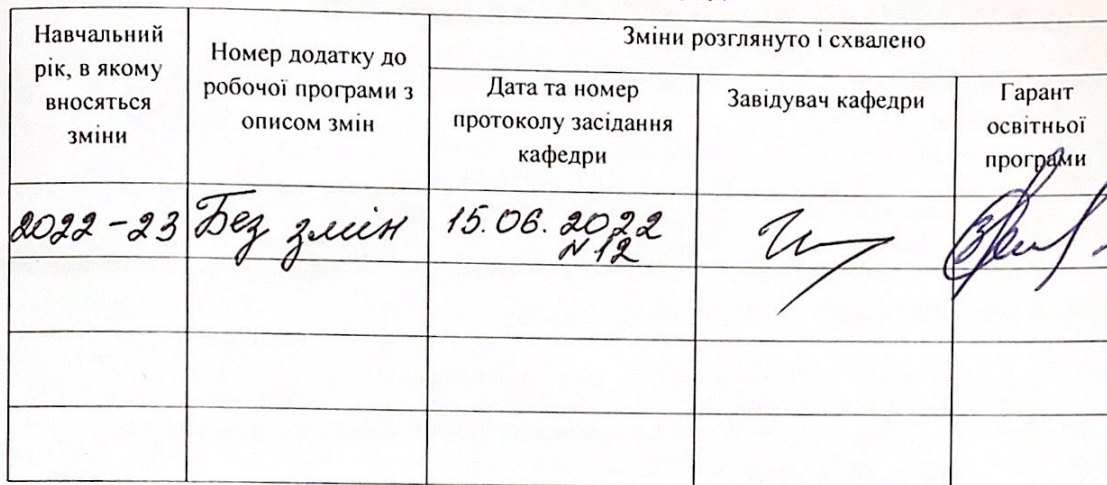 Навчальний
рік, в якому
вносяться
зміни
Номер додатку до
робочої програми з
описом змін
Зміни розглянуто і схвалено
Дата та номер
протоколу засідання
кафедри
Завідувач кафедри
Гарант
освітньої
програми
2022-23
Без змін
15.06.2022
№12